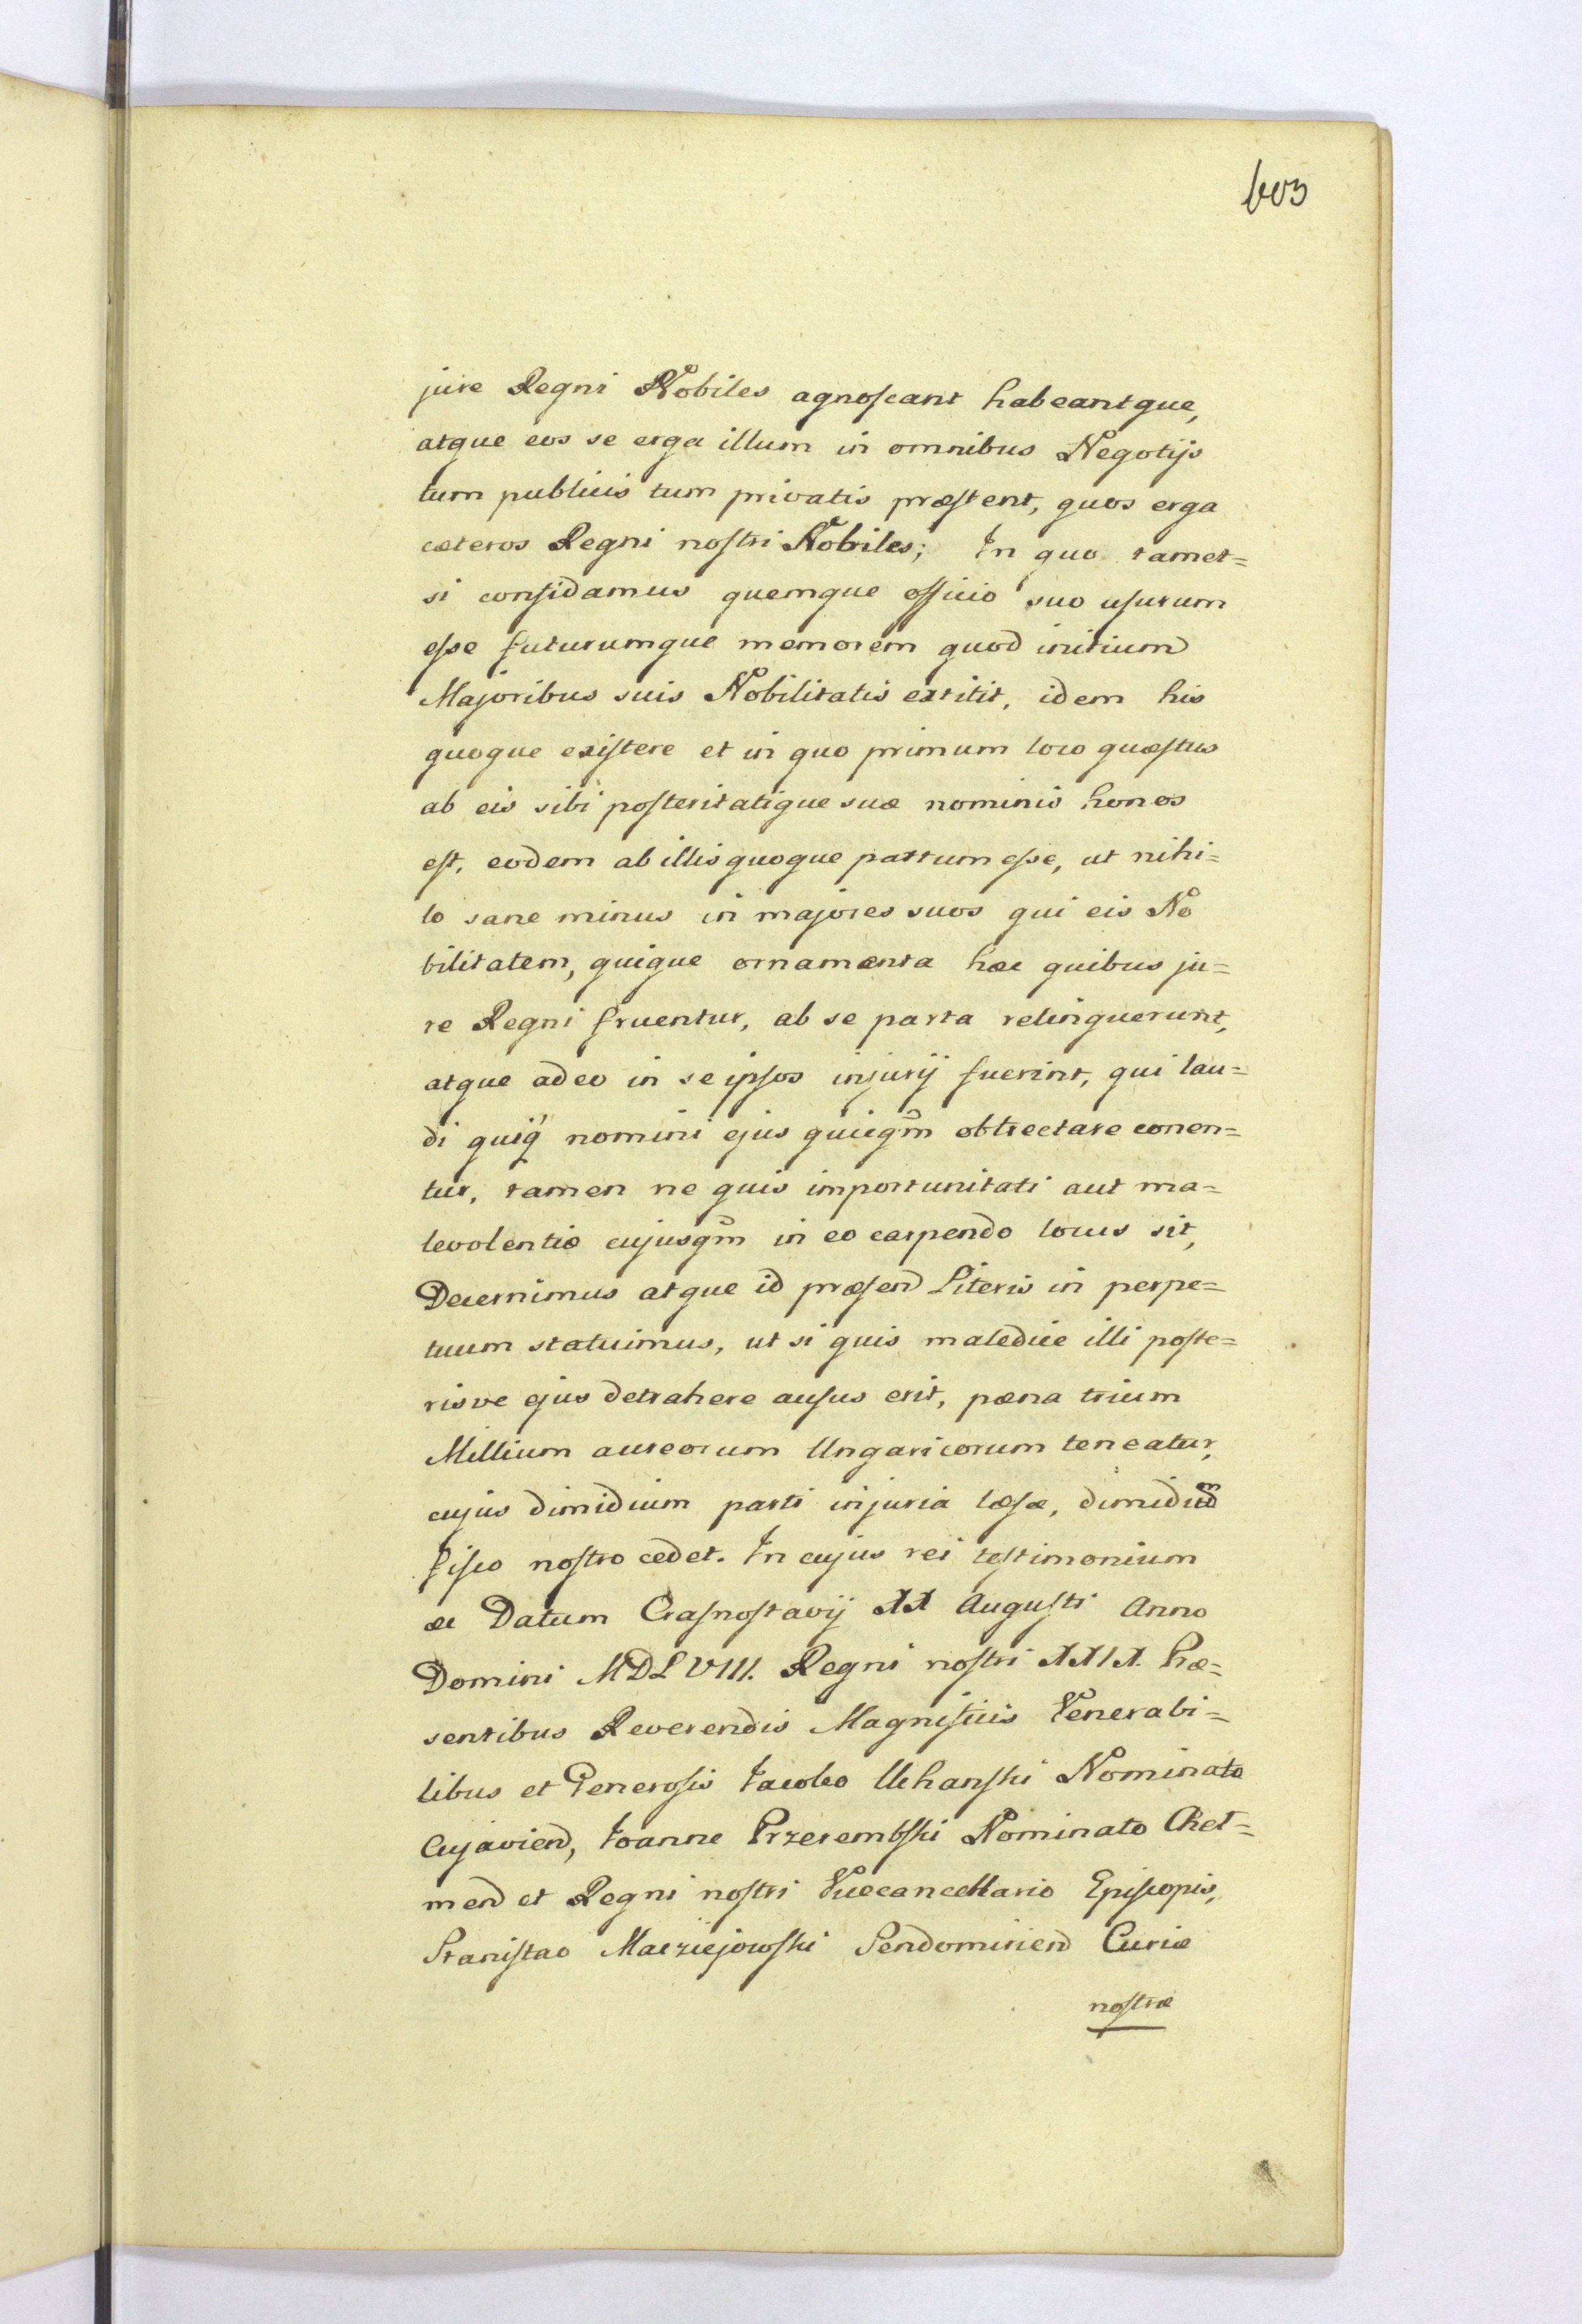 603
jure Regni Nobiles agnoscant habeantque,
atque eos se erga illum in omnibus Negotijs
tum publicis tum privatis præstent, quos erga
cæteros Regni nostri Nobiles; In quo tamet=
si confidamus quemque officio suo usurum
esse futurumque memorem quod initium
Majoribus suis Nobilitatis extitit, idem his
quoque existere et in quo primum loco quæstus
ab eis sibi posteritatique suæ nominis honos
est, eodem ab illis quoque partum esse, ut nihi=
lo sane minus in majores suos qui eis No
bilitatem, quique ornamenta hæc quibus ju=
re Regni fruentur, ab se parta relinquerunt,
atque adeo in se ipsos injurij fuerint, qui lau=
di quiq̃ nomini ejus quicq̃m obtrectare conen=
tur, tamen ne quis importunitati aut ma=
levolentiæ cujusq̃m in eo carpendo locus sit,
Decernimus atque id præsend Literis in perpe=
tuum statuimus, ut si quis maledice illi poste=
risve ejus detrahere ausus erit, pæna trium
Millium aureorum Ungaricorum teneatur,
cujus dimidium parti injuria læsæ, dimidium
fisco nostro cedet. In cujus rei testimonium
&c Datum Crasnostavij XX Augusti Anno
Domini MDLVIII. Regni nostri XXIX. Præ=
sentibus Reverendis Magnificis Venerabi=
libus et Generosis Jacobo Uchanski Nominato
Cujaviend, Joanne Przerembski Nominato Chel=
mend et Regni nostri Vicecancellario Episcopis,
Stanislao Macziejowski Sendomiriend Curiæ
nostræ